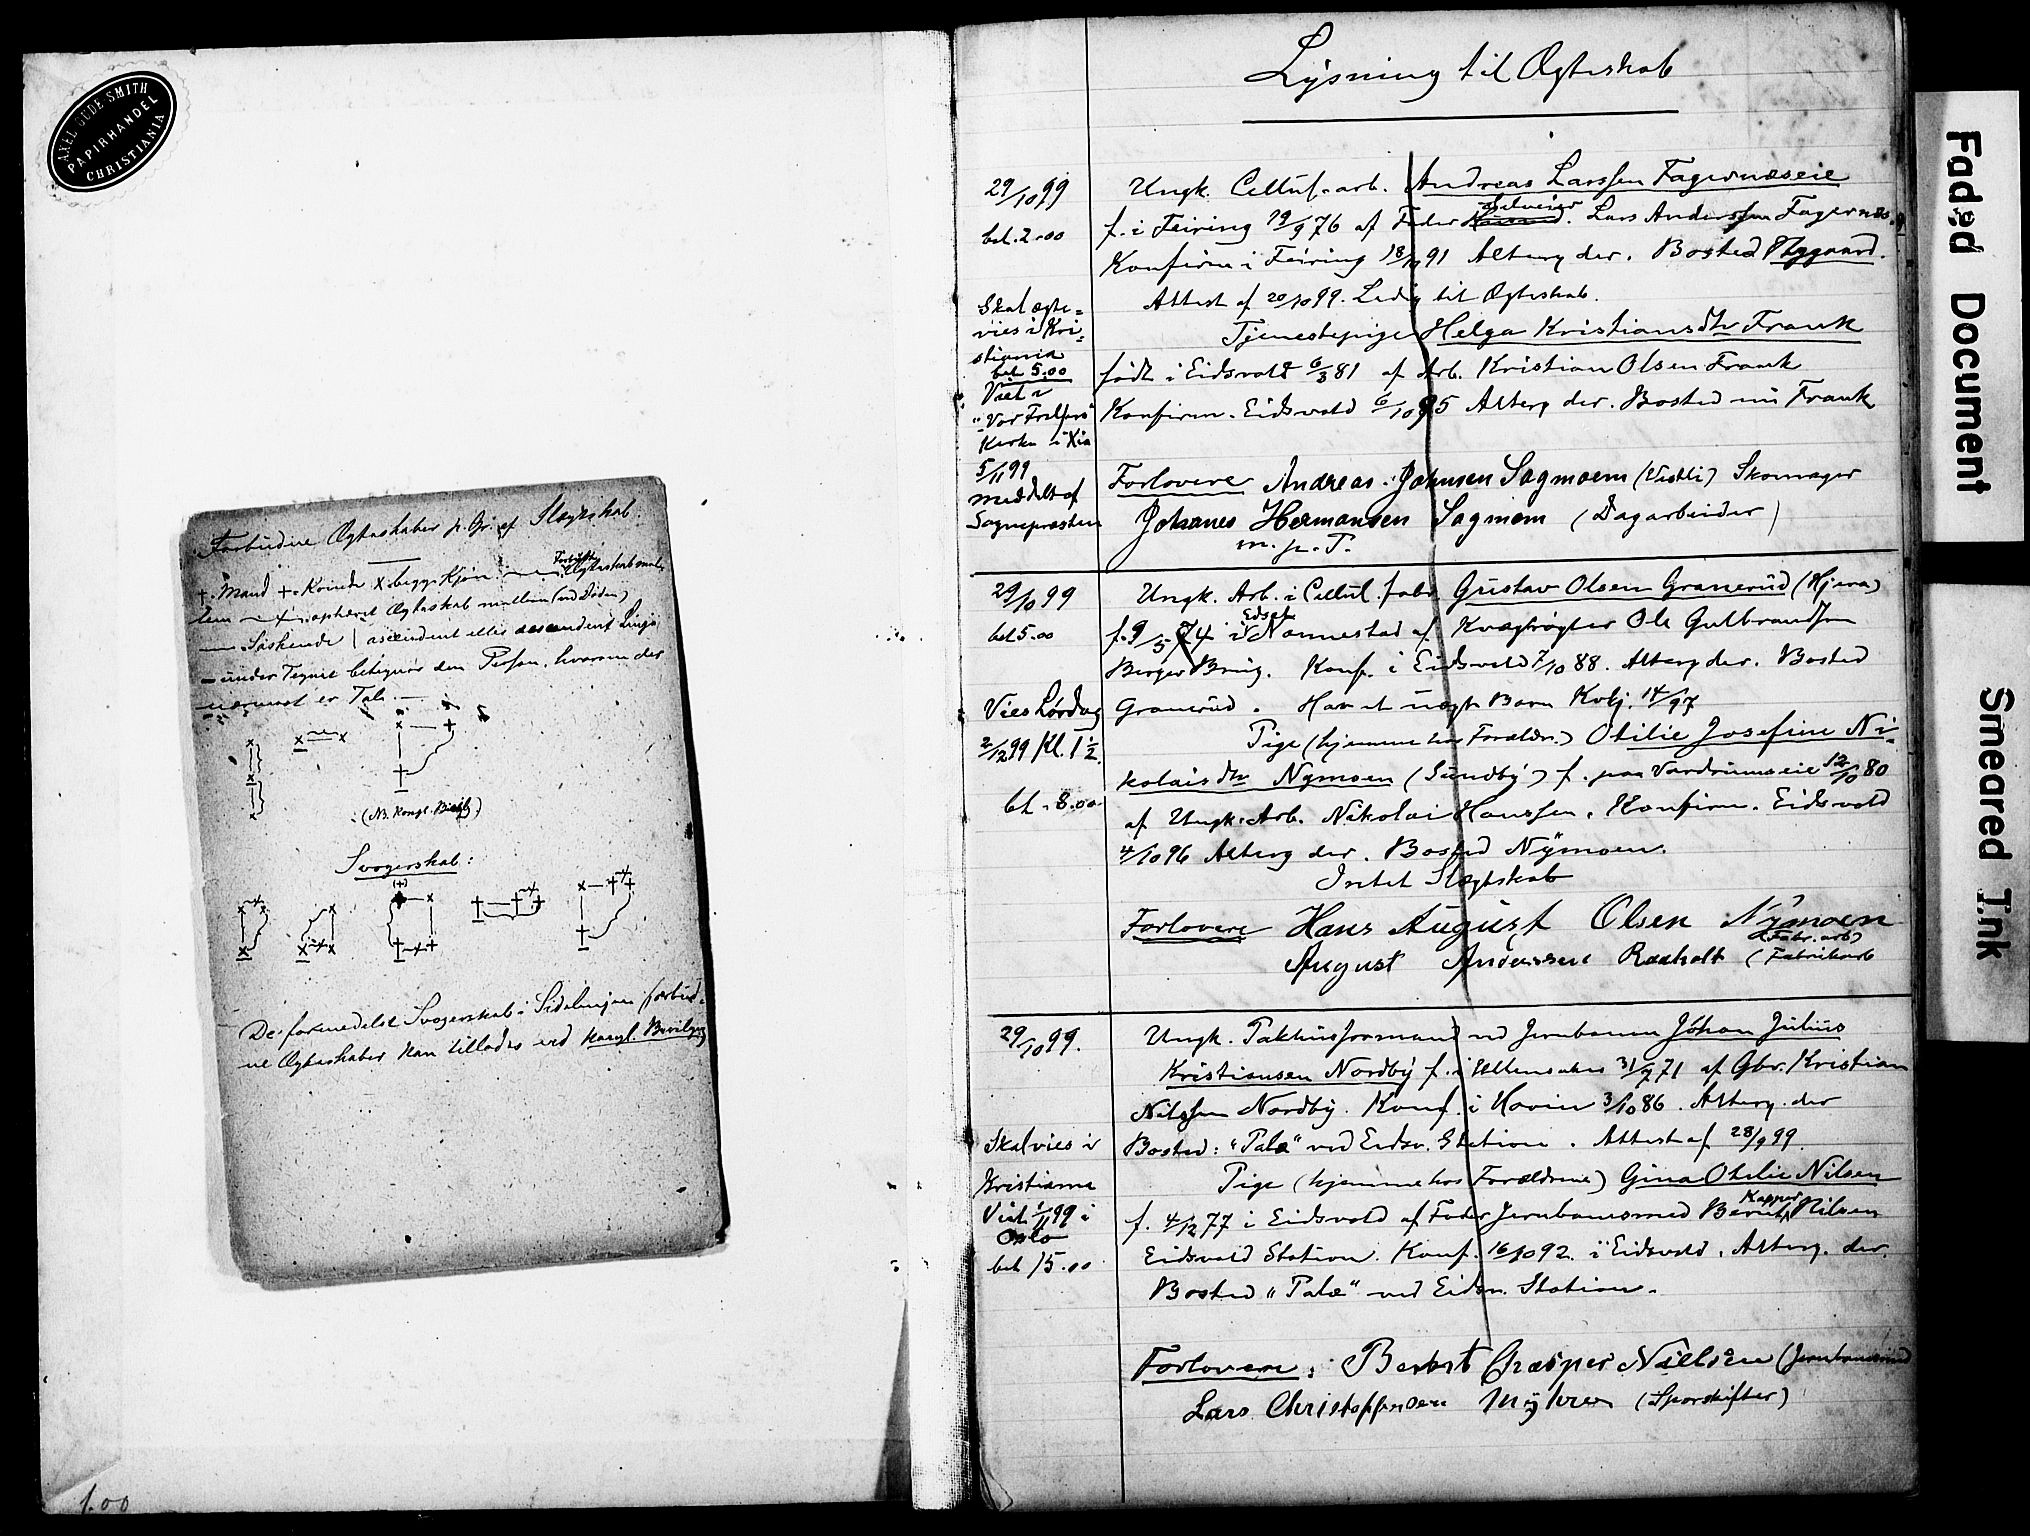 AXEL GUDE SMITH
PAPIRHANDEL
CHRISTIANIA
Forbudne Ægteskaber p. Gr. af Slægtskab.
Mand + Kvinde x begge Kjøn Forbudt Ægteskab mel
lem ophævet Ægteskab mellem (ved Døden)
Søskende | ascendent eller descendent Linje
under Tegnet betegner den Person, hvorom der
nærmest er Tale.
(NB. Kongl. Bevilg.)
Svogerskab:
De formedelst Svogerskab i Sidelinjen forbud-
ne Ægteskaber kan tillades ved Kongl. Bevilgng
1.00
Lysning til Ægteskab
29/10 99
bet. 2.00
Skal ægte=
vies i Kri=
stiania
bet 5.00
Viet i
"Vor Frelsers"
Kirke i Xia
5/11 99
meddelt af
Sognepresten
Ungk. Cellul. arb. Andreas Larssen Fagernæseie
f. i Feiring 19/9 76 af Fader Selveier Lars Anderssen Fagernæs.
Konfirm i Feiring 18/10 91 Altberg der. Bosted Nygaard.
Attest af 20/10 99. Ledig til Ægteskab.
Tjenestepige Helga Kristiansdtr Frank
født i Eidsvold 6/3 81 af Arb. Kristian Olsen Frank
Konfirm. Eidsvold 6/10 95 Altberg der. Bosted nu Frank
Forlovere Andreas Johnsen Sagmoem (Vestli) Skomager
Johanes Hermansen Sagmoem (Dagarbeider)
m. p. P.
29/10 99
bet 5.00
Vies Lørdag
2/12 99 Kl. 1 1/2.
bet. 8.00
Ungk. Arb. i Cellul. fabr. Gustav Olsen Granerud (Hjera)
f. 9/5 74 i Nannestad af Kvægrøgter Ole Gulbrandsen
Berger Brug. Konf. i Eidsvold 7/10 88. Altberg der. Bosted
Granerud. Har et uægte Barn Kvkj. 14/97
Pige (hjemme hos Forældr.) Otilie Josefine Ni-
kolaisdtr Nymoen (Sundby) f. paa Vardrumseie 12/10 80
af Ungk. Arb. Nikolai Hanssen. Konfirm. Eidsvold
4/10 96 Altberg der. Bosted Nymoen.
Intet Slægtskab
Forlovere Hans August Olsen Nymoen
(Fabr. arb)
August Anderssen Raaholt (Fabrikarb
29/10 99.
Skal vies i
Kristiania
Viet 1/11 99 i
Oslo
bet 15.00
Ungk. Pakhusformand ved Jernbanen Johan Julius
Kristiansen Nordby f. i Ullensaker 31/7 71 af Gbr. Kristian
Nilssen Nordby. Konf. i Hovin 3/10 86. Altberg. der
Bosted: "Palæ" ved Eidsv. Station. Attest af 28/9 99.
Pige (hjemme hos Forældrene) Gina Otilie Nilsen
f. 4/12 77 i Eidsvold af Fader Jernbanesmed Bernt Kasper Nilsen
Eidsvold Station. Konf. 16/10 92. i Eidsvold. Altberg. der.
Bosted "Palæ" ved Eidsv. Station.
Forlovere: Berbst Chæsper Nielsen (Jernbanesmed
Lars Christoffersen Myhrer (Sporskifter)
Faded Document
Smeared Ink